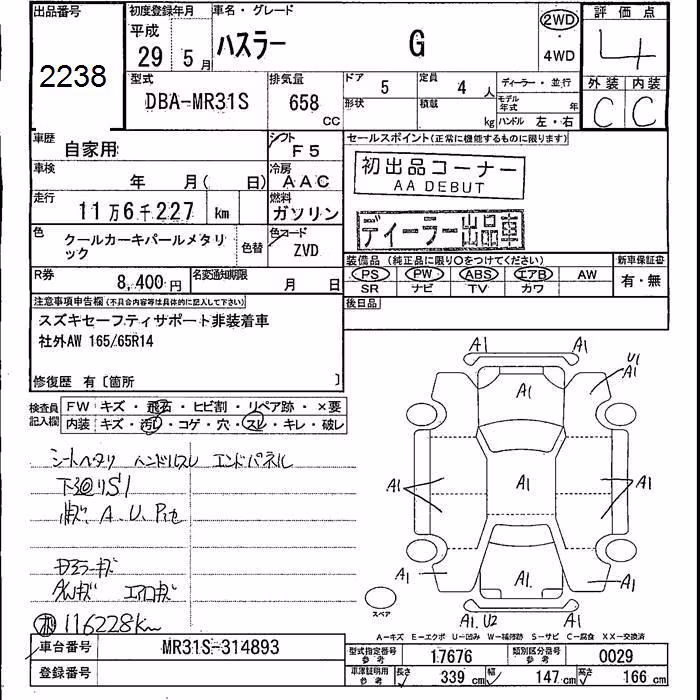 出品番号
2238
初度登録年月
平成
29年 5月
車名・グレード
ハスラー G
2WD
・
4WD
評価点
4
外装 内装
C C
型式
DBA-MR31S
排気量
658
CC
ドア 5
形状
定員 4人
積載 kg
ディーラー・並行
モデル年式 年
ハンドル 左・右
車歴
自家用
シフト
F5
車検
年 月( 日)
冷房
AAC
走行
11万6千227 km
燃料
ガソリン
色
クールカーキパールメタリ
ック
色替
色コード
ZVD
R券
8,400円
名変通知期限
月 日
セールスポイント(正常に機能するものに限ります)
初出品コーナー
AA DEBUT
ディーラー出品車
装備品(純正品に限り○をつけてください)
PS PW ABS エアB AW
SR ナビ TV カワ
新車保証書
有・無
後日品
注意事項申告欄(不具合内容等は具体的に記入して下さい)
スズキセーフティサポート非装着車
社外AW 165/65R14
修復歴 有〔箇所 〕
検査員
記入欄
FW キズ・飛石・ヒビ割・リペア跡・×要
内装 キズ・汚レ・コゲ・穴・スレ・キレ・破レ
シートヘタリ ハンドルスレ エンドパネル
下廻りS1
A、U、Pite
ドアミラーキズ
AWキズ エアロキズ
116228km
A1 A1
A1
U1
A1
A1 A1 A1
A1 A1 A1
A1. U2 A1
スペア
A―キズ E―エクボ U―凹み W―補修跡 S―サビ C―腐食 XX―交換済
車台番号
MR31S-314893
登録番号
型式指定番号
参考
17676
類別区分番号
参考
0029
車庫証明用
参考
長さ 339 cm
幅 147 cm
高さ 166 cm